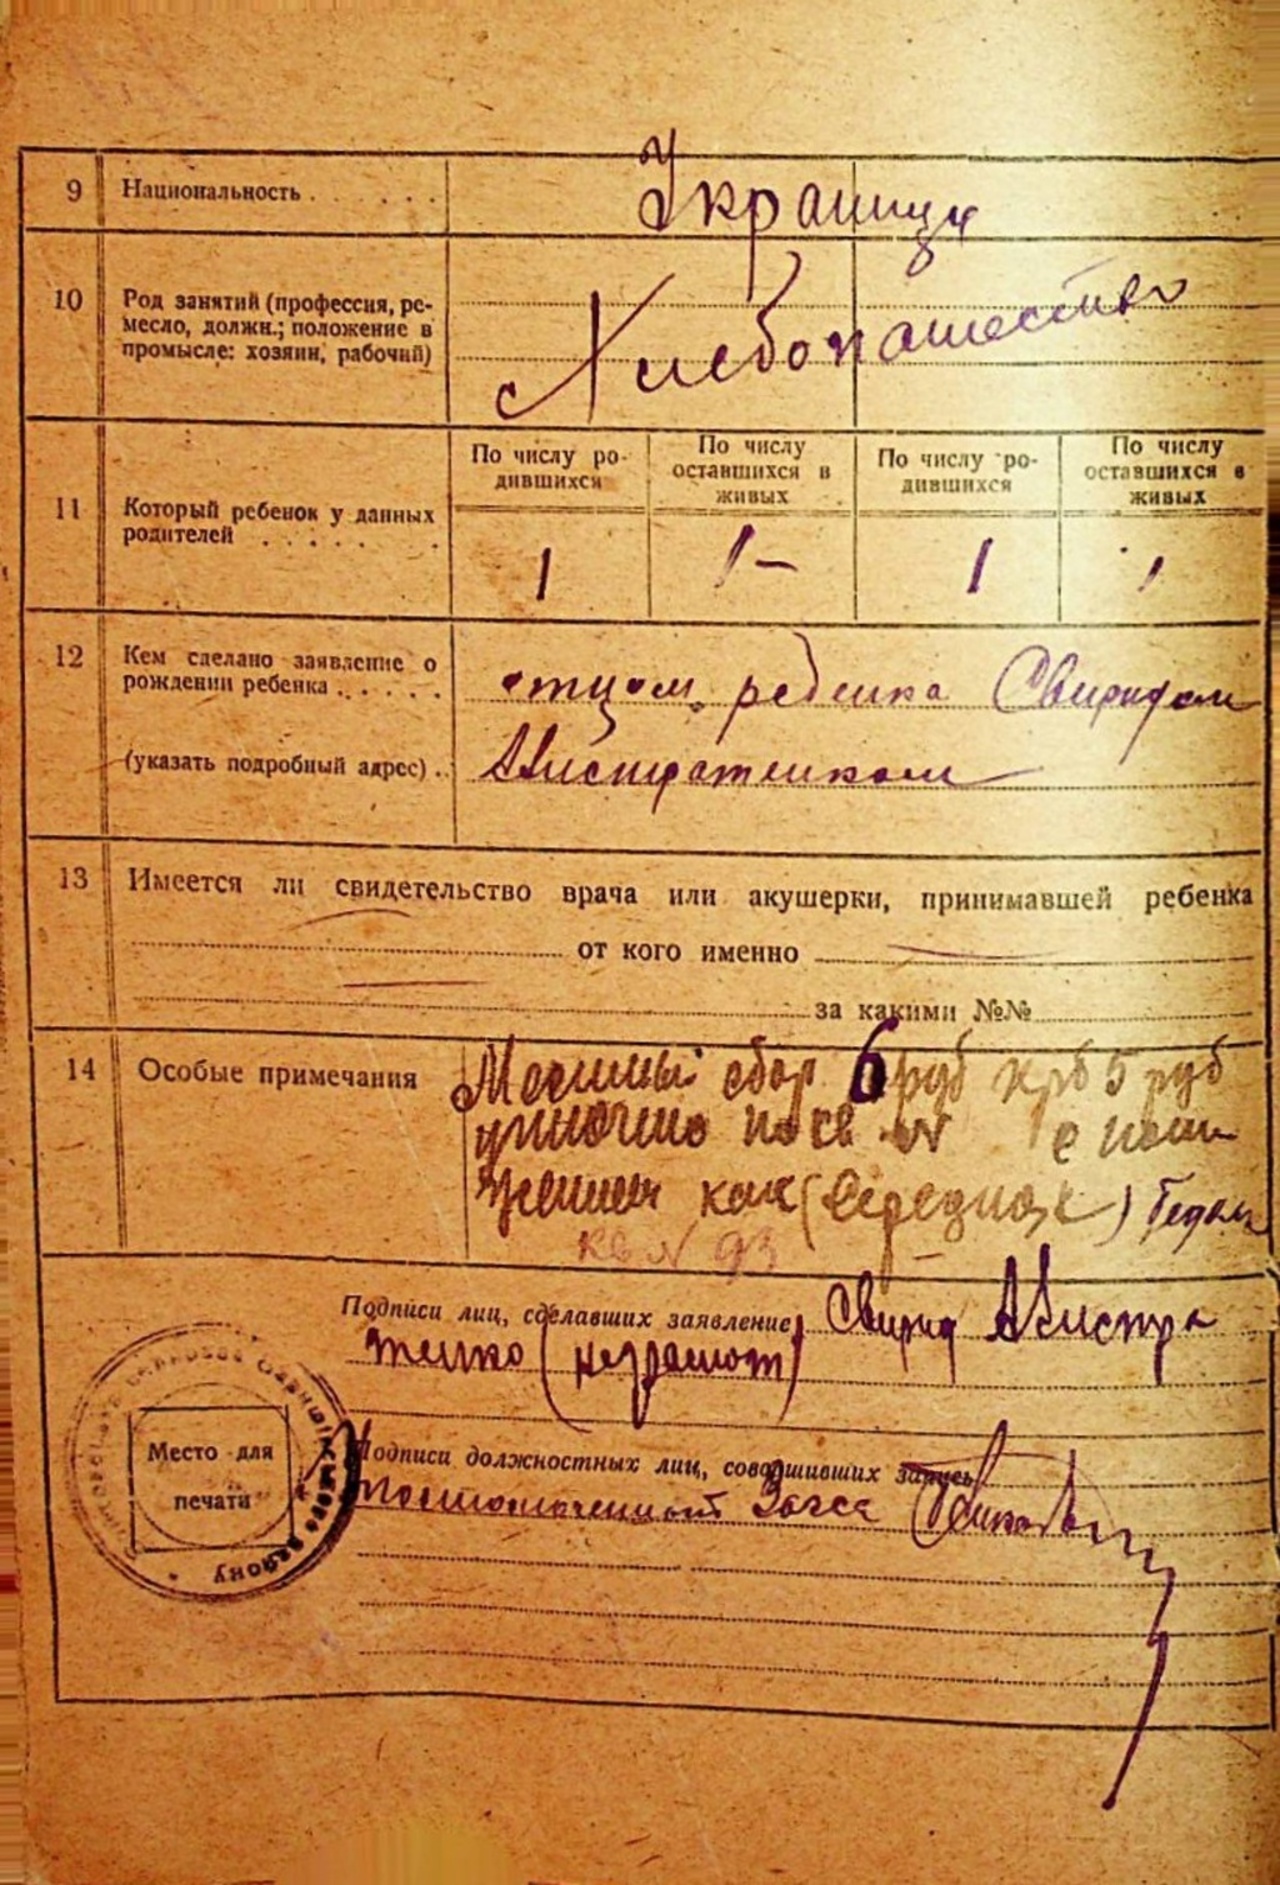 9 Национальность . . . . . .
Украинцы
10 Род занятий (профессия, ре-
месло, должн.; положение в
промысле: хозяин, рабочий)
Хлебопашество
11 Который ребенок у данных
родителей . . . . . .
По числу ро-
дившихся
По числу
оставшихся в
живых
По числу ро-
дившихся
По числу
оставшихся в
живых
1 1- 1 1
12 Кем сделано заявление о
рождении ребенка . . . . . .
(указать подробный адрес) . .
отцом ребенка Свиридом
Авистратенком
13 Имеется ли свидетельство врача или акушерки, принимавшей ребенка
от кого именно
за какими №№
14 Особые примечания
Местный сбор 6 руб крб 5 руб
уплочено по кв № с пони
жением как (середняк)
кв N 93
Подписи лиц, сделавших заявление Свирид Авистра
тенко (неграмот)
Место для
печати
району
Подписи должностных лиц, совершивших запись
Загса